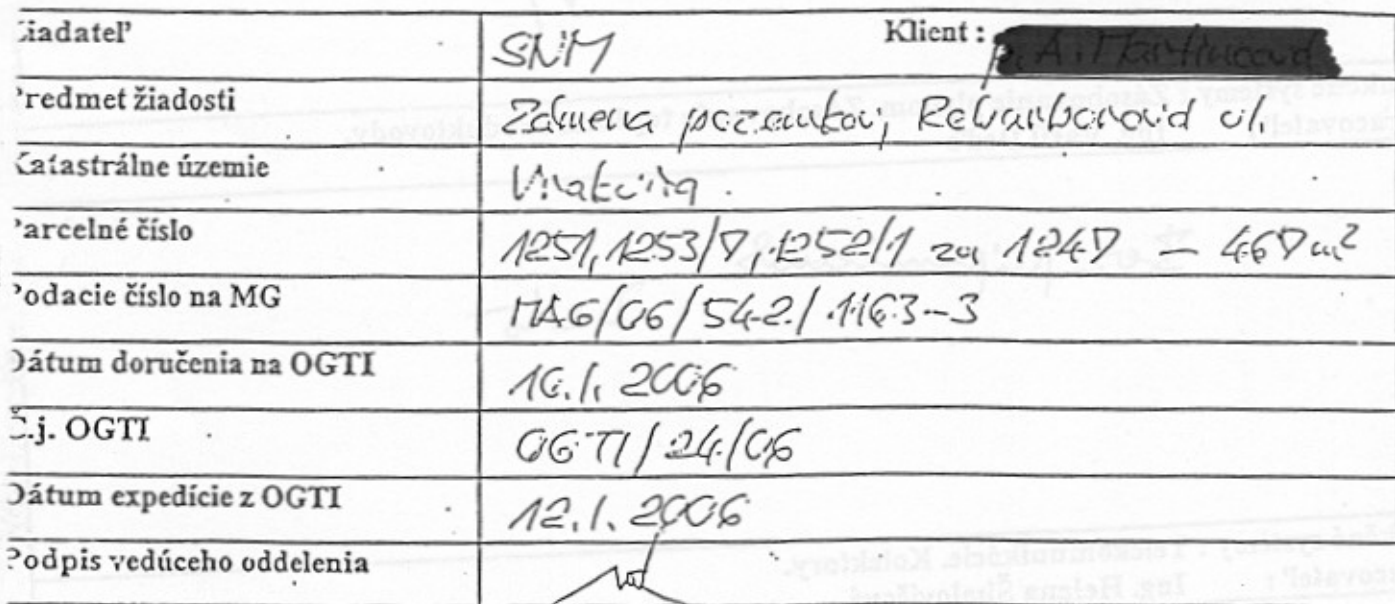 Žiadateľ SNM Klient :
Predmet žiadosti Zámena pozemkov, Rebarborová ul.
Katastrálne územie Vrakuňa
Parcelné číslo 1251, 1253/7, 1252/1 za 1247 – 467 m²
Podacie číslo na MG MAG/06/542/1163-3
Dátum doručenia na OGTI 10.1. 2006
Č.j. OGTI OGTI/24/06
Dátum expedície z OGTI 12.1. 2006
Podpis vedúceho oddelenia